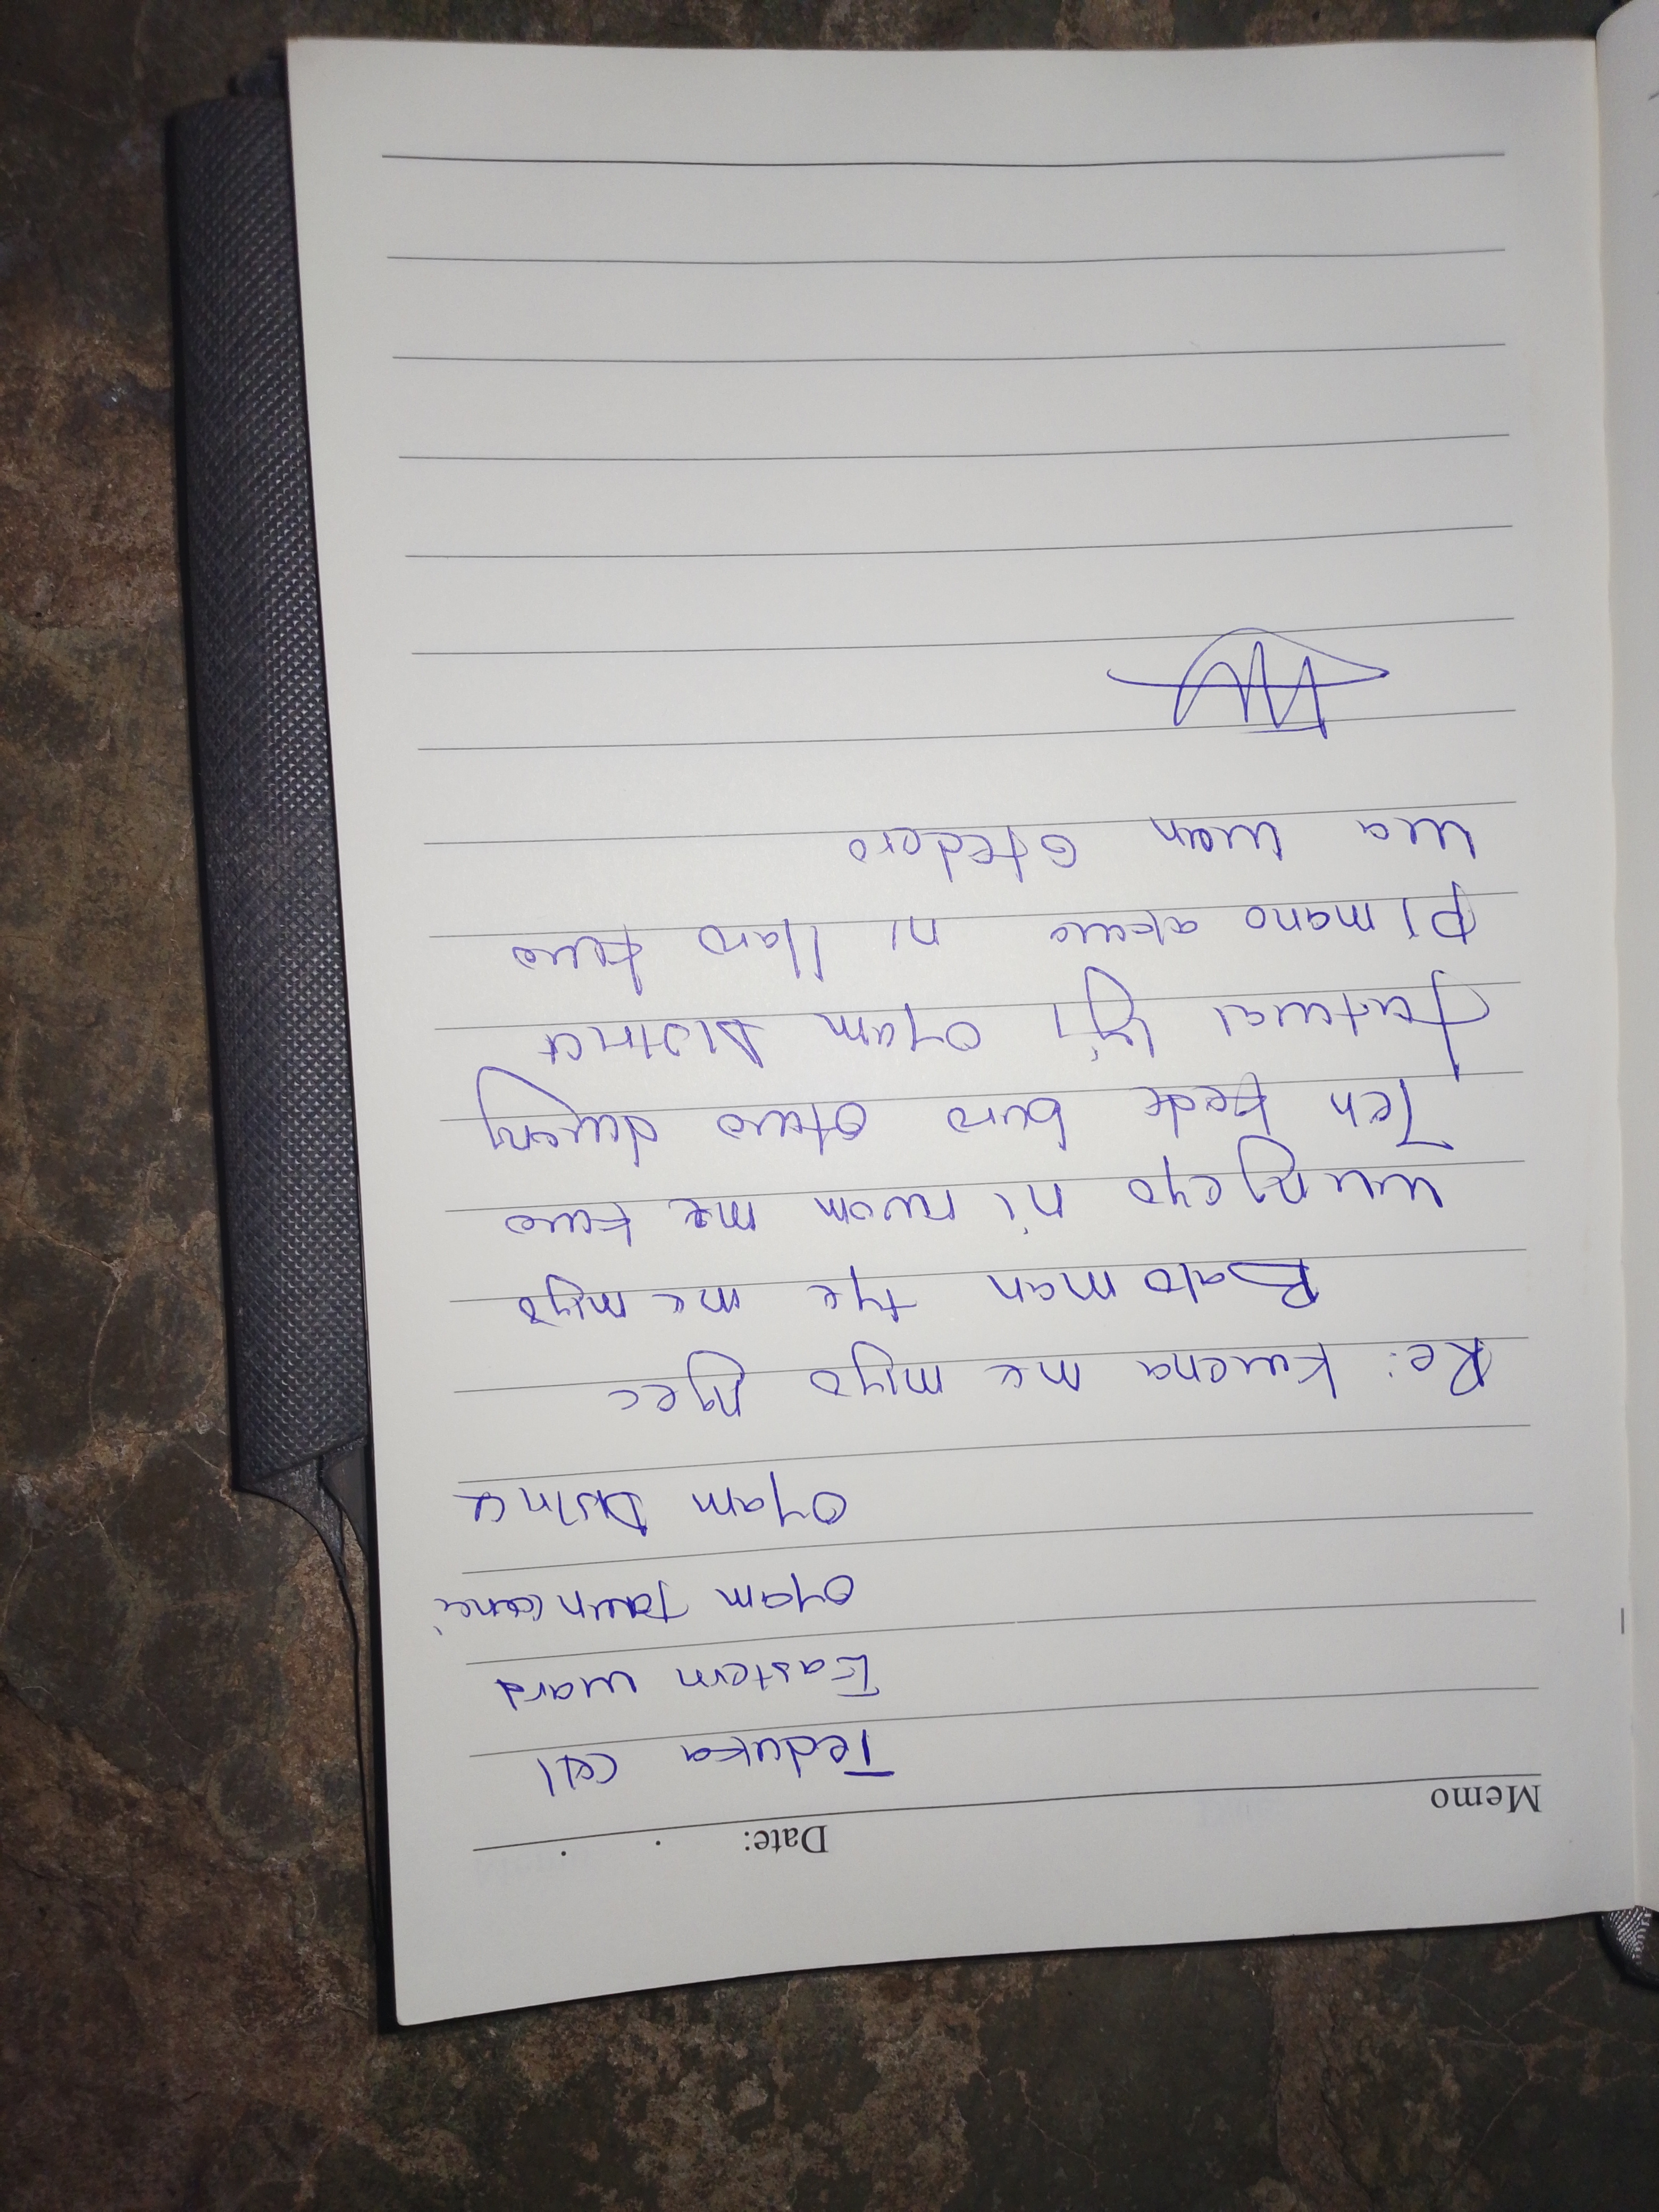 Memo
Date:
Teduka cell
Eastern ward
Oyam Town
Oyam District
Re: Kwena me miyo ngec
Balo man tye me miyo
wungeyo ni rwom me kwo
Ten kede buro otwo dwong
tutwal iyi oyam District
pi mano akwo ni llaro kwo
wa wan Otedero